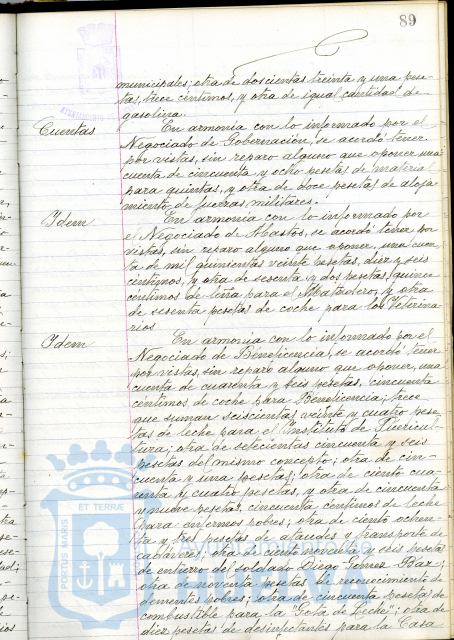 89
municipales; otra de doscientas treinta y una pese-
tas, trece céntimos, y otra de igual cantidad de
gasolina.
Cuentas
En armonía con lo informado por el
Negociado de Gobernación, se acordó tener
por vistas, sin reparo alguno que oponer, una
cuenta de cincuenta y ocho pesetas de material
para quintas, y otra de doce pesetas de aloja-
miento de fuerzas militares.
Idem
En armonía con lo informado por
el Negociado de Abastos, se acordó tener por
vistas, sin reparo alguno que oponer, una cuen-
ta de mil quinientas veinte pesetas, diez y seis
céntimos, y otra de sesenta y dos pesetas, quince
céntimos de leña para el Matadero, y otra
de sesenta pesetas de coche para los Veterina-
rios
Idem
En armonía con lo informado por el
Negociado de Beneficencia, se acordó tener
por vistas, sin reparo alguno que oponer, una
cuenta de cuarenta y seis pesetas, cincuenta
céntimos de coche para Beneficencia; trece
que suman seiscientas veinte y cuatro pese-
tas de leche para el Instituto de Puericul-
tura; otra de setecientas cincuenta y seis
pesetas del mismo concepto; otra de cin-
cuenta y una pesetas; otra de ciento cua-
renta y cuatro pesetas, y otra de cincuenta
y nueve pesetas, cincuenta céntimos de leche
para enfermos pobres; otra de ciento ochen-
ta y tres pesetas de ataudes y transporte de
cadáveres; otra de ciento noventa y seis pesetas
de entierro del soldado Diego Gómez Baz;
otra de noventa pesetas de reconocimiento de
dementes pobres; otra de cincuenta pesetas de
combustible para la "Gota de Leche"; otra de
diez pesetas de desinfectantes para la Casa
PORTUS MARIS ET TERRÆ